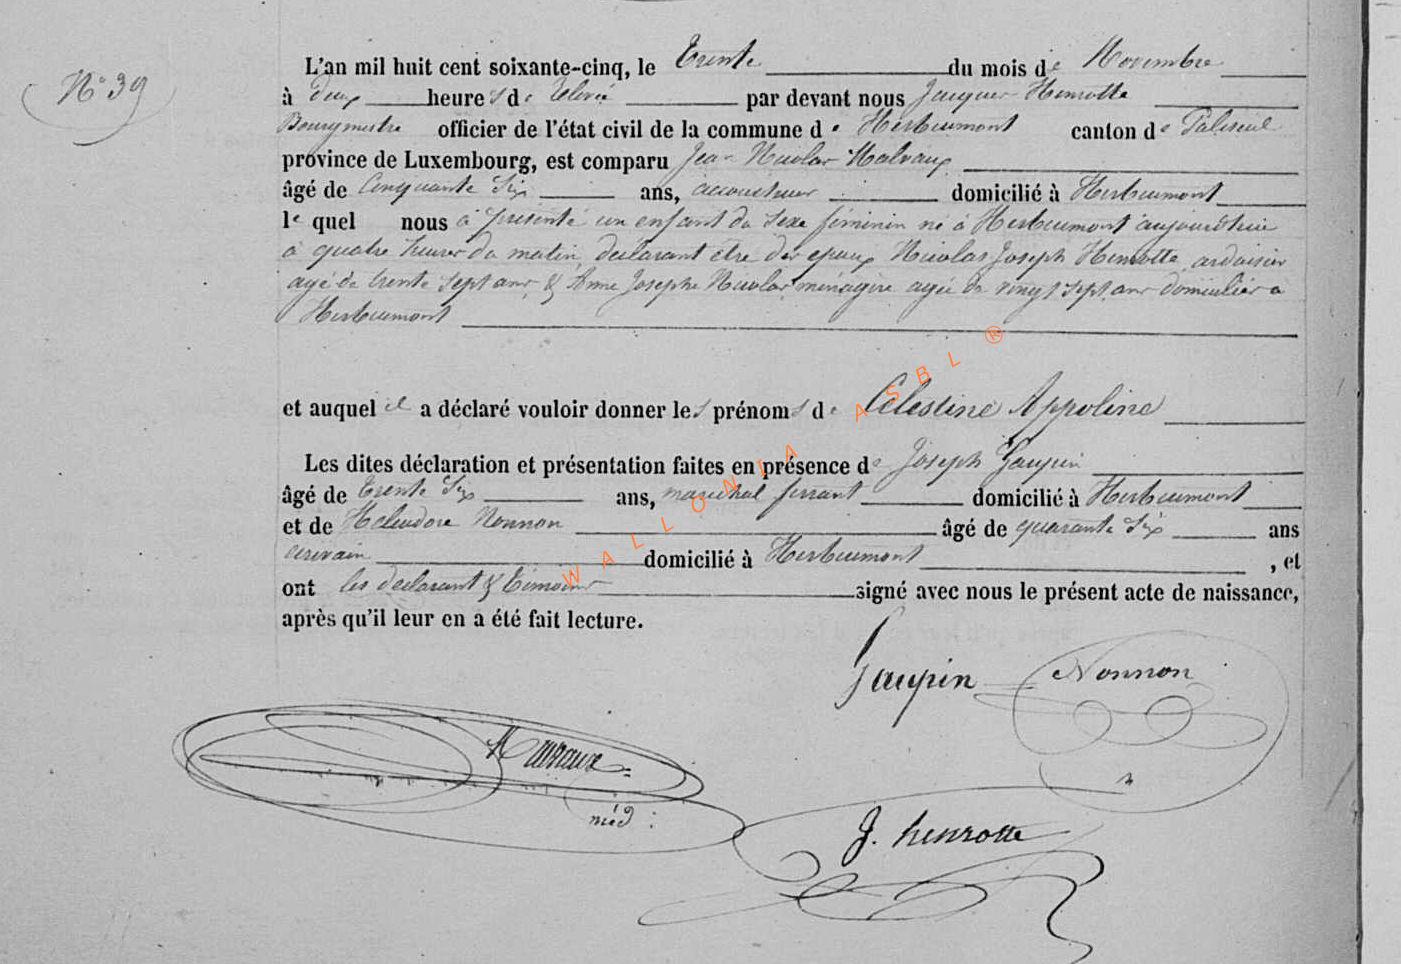 N° 39
L'an mil huit cent soixante-cinq, le Trente du mois de Novembre
à deux heures de relevée par devant nous Jacques Henrotte
Bourgmestre officier de l'état civil de la commune de Herbeumont canton de Paliseul
province de Luxembourg, est comparu Jean Nicolas Malvaux
âgé de Cinquante Six ans, accoucheur domicilié à Herbeumont
le quel nous a présenté un enfant du sexe féminin né à Herbeumont aujourd'hui
à quatre heures du matin, déclarant être des époux Nicolas Joseph Henrotte, ardoisier
agé de trente sept ans & Anne Josephe Nicolas ménagère agée de vingt sept ans domiciliés à
Herbeumont
et auquel il a déclaré vouloir donner les prénoms de Célestine Appoline
Les dites déclaration et présentation faites en présence de Joseph Gaupin
âgé de Trente Six ans, maréchal ferrant domicilié à Herbeumont
et de Héliodore Nonnon âgé de quarante Six ans
écrivain domicilié à Herbeumont , et
ont les déclarant & Témoins signé avec nous le présent acte de naissance,
après qu'il leur en a été fait lecture.
Gaupin Nonnon
méd :
J. henrotte
WALLONIA ASBL ®